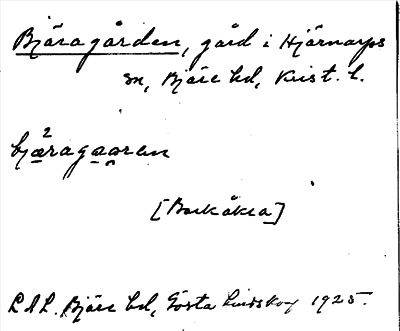 Bjäragården, gård i Hjärnarps
sn, Bjäre hd, Krist. l.
bjæ²ragaaren
[Barkåkra]
L A L. Bjäre hd, Gösta Lindskog 1925.